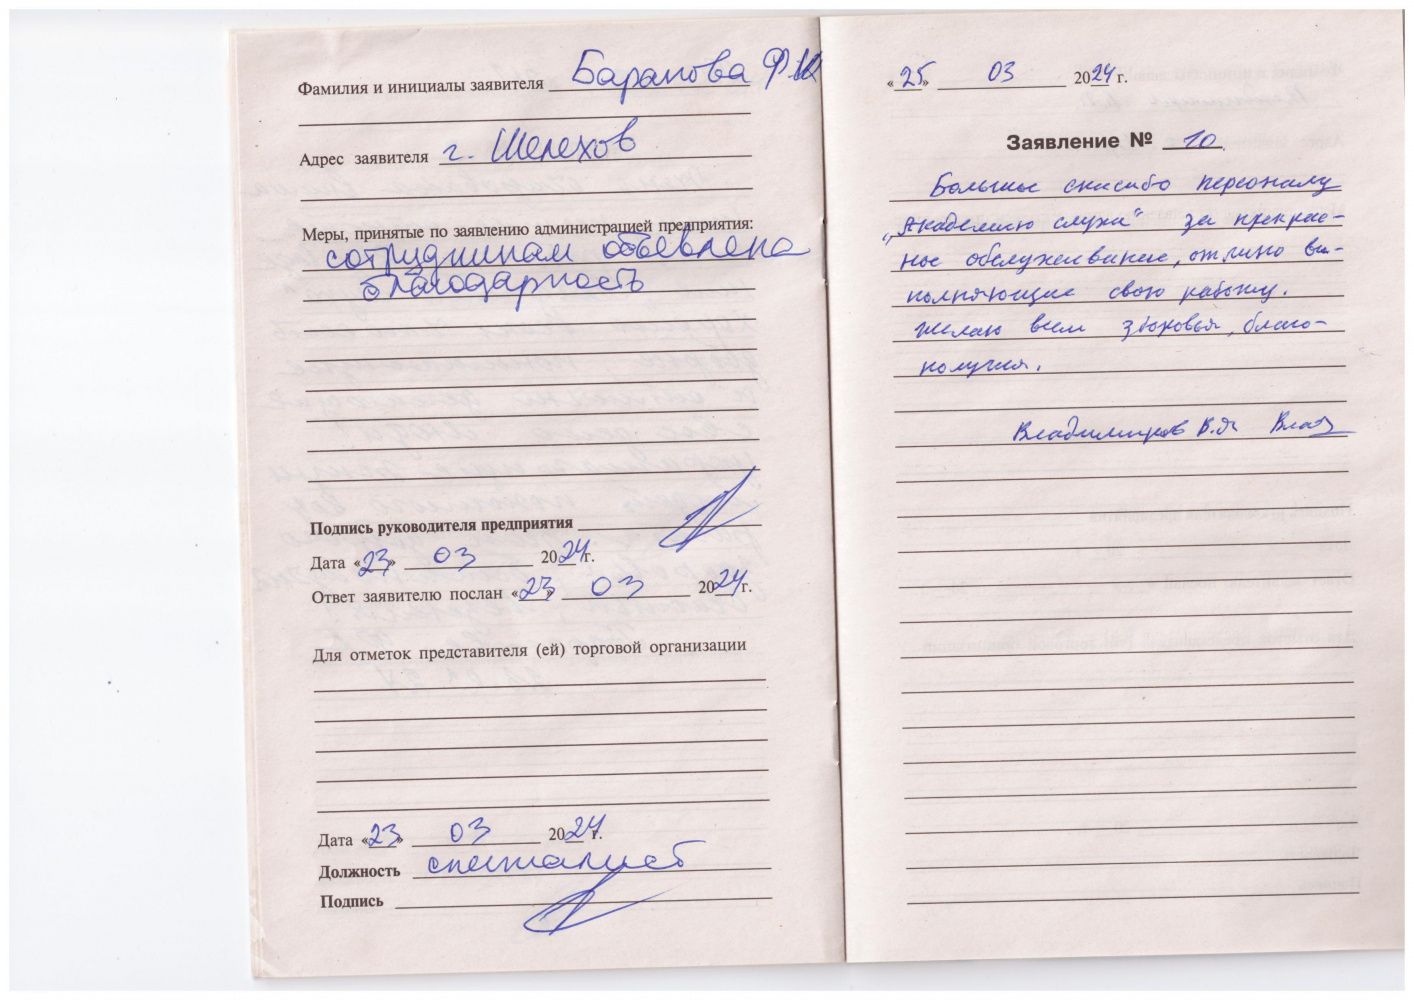 Фамилия и инициалы заявителя Баранова Ф.И
Адрес заявителя г. Шелехов
Меры, принятые по заявлению администрацией предприятия:
сотрудникам объевлена
благодарность
Подпись руководителя предприятия
Дата «23» 03 2024 г.
Ответ заявителю послан «23» 03 2024 г.
Для отметок представителя (ей) торговой организации
Дата «23» 03 2024 г.
Должность специалист
Подпись
«25» 03 2024 г.
Заявление № 10
Большое спасибо персоналу
„Академию слуха“ за прекрас-
ное обслуживание, отлино вы-
полняющие свою работу.
Желаю всем здоровья, благо-
получия.
Владимиров В.Я Влад